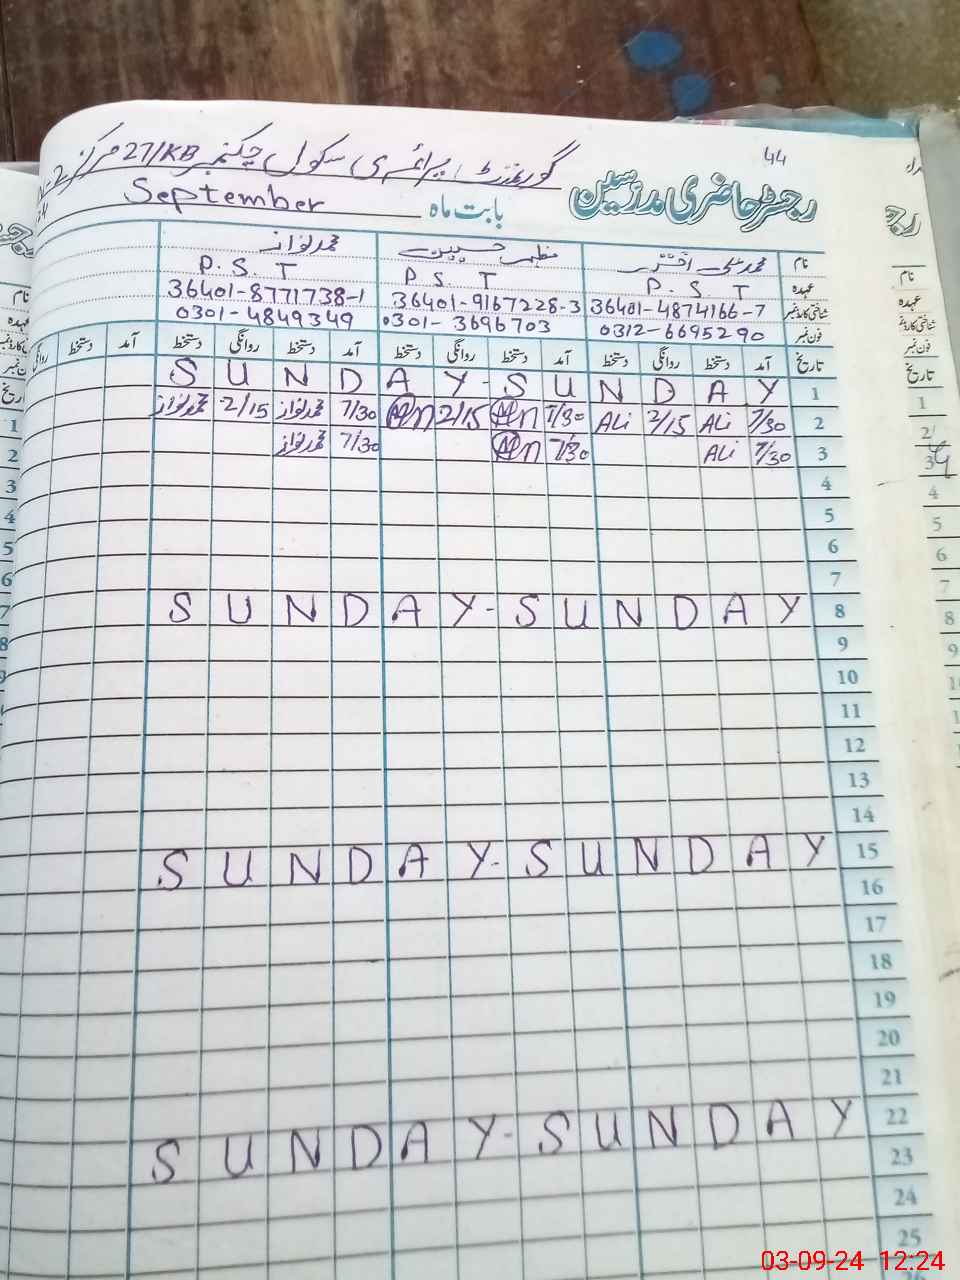 44
گورنمنٹ پرائمری سکول چک نمبر 27/KB مرکز
رجسٹر حاضری مدرسین بابت ماہ September
نام محمد علی اختر مظہر حسین محمد نواز
عہدہ P. S. T P. S. T P. S. T
شناختی کارڈ نمبر 36401-4874166-7 36401-9167228-3 36401-8771738-1
فون نمبر 0312-6695290 0301-3696703 0301-4849349
تاریخ آمد دستخط روانگی دستخط آمد دستخط روانگی دستخط آمد دستخط روانگی دستخط آمد دستخط روانگی
S U N D A Y - S U N D A Y 1
محمد نواز 2/15 محمد نواز 7/30 2/15 7/30 ALi 2/15 ALi 7/30 2
محمد نواز 7/30 7/30 ALi 7/30 3
4
5
6
7
S U N D A Y - S U N D A Y 8
9
10
11
12
13
14
S U N D A Y - S U N D A Y 15
16
17
18
19
20
21
S U N D A Y - S U N D A Y 22
23
24
25
نام
عہدہ
شناختی کارڈ نمبر
فون نمبر
تاریخ
1
2
3
4
5
6
7
8
9
10
03-09-24 12:24